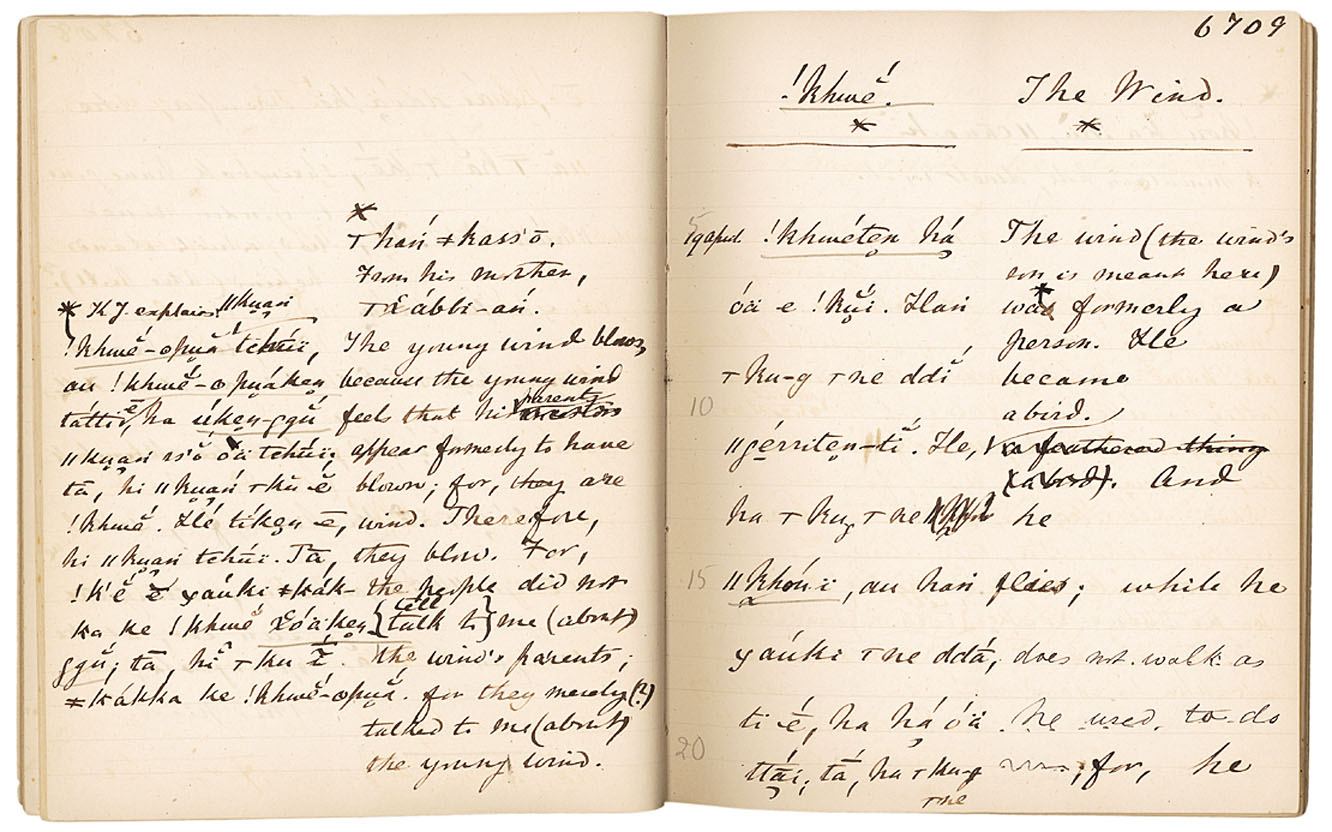 *
ꞱHań ǂkass'ō.
From his mother,
Ʇẋábbi-ań.
* H J. explains ǁkuań
!khwĕ́-opuắ tchū́ï, The young wind blows,
au !khwĕ́-opuáken because the young wind
táttĭ ē, ha úken-ggŭ́ feels that his parents
ǁkuań ss'ō óä tchū́ï; appear formerly to have
tā, hi ǁkuań Ʇkŭ ĕ́ blown; for, they are
!khwĕ́. Hé tíken ē, wind. Therefore,
hi ǁkuań tchūï. Tā, they blow. For,
!k'ĕ́ ĕ yaúki ǂkák- the people did not
ka ke !khwĕ́ ẋóäken { tell talk to } me (about)
ggŭ́; tā, hĭ Ʇku the wind's parents;
ǂkákka ke !khwĕ́-opuá. for they merely (?)
talked to me (about)
the young wind.
6709
!khwĕ́. The Wind.
* *
!khwéten há The wind (the wind's
son is meant here)
óä e !kŭ́i. Han *was formerly a
person. He
Ʇku-g Ʇne ddĭ́ became
10 a bird.
ǁgérriten-tĭ. He, a feathered thing
(a bird). And
ha Ʇku Ʇne he
15 ǁkhóńï, au hań flies; while he
yaúki Ʇne ddā́, does not walk as
ti ḗ, ha há óä he used to do
20 ttāí; tā́, ha Ʇku-g ; for, he
Ʇne